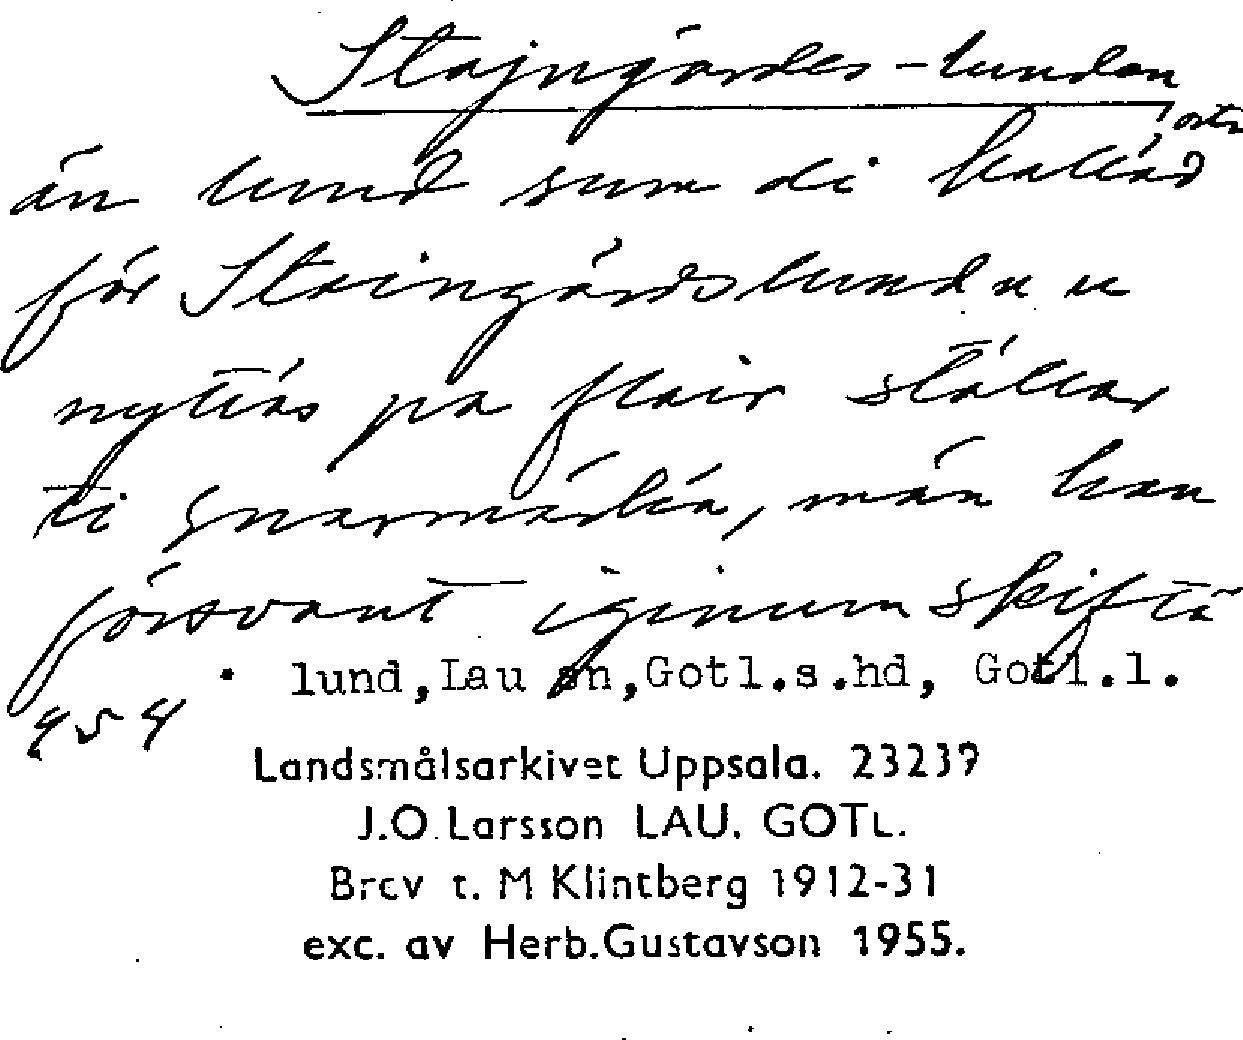 Stajngårdes-lunden
, ortn
än lund sum di kallad
för Staingårdslundn u
nyttas pa flair ställar
ti gnarmärkä, män han
försvant iginum skiftä
lund, Lau sn, Gotl.s.hd, Gotl.l.
454
Landsmålsarkivet Uppsala. 23239
J.O. Larsson LAU. GOTL.
Brev t. M Klintberg 1912-31
exc. av Herb.Gustavson 1955.